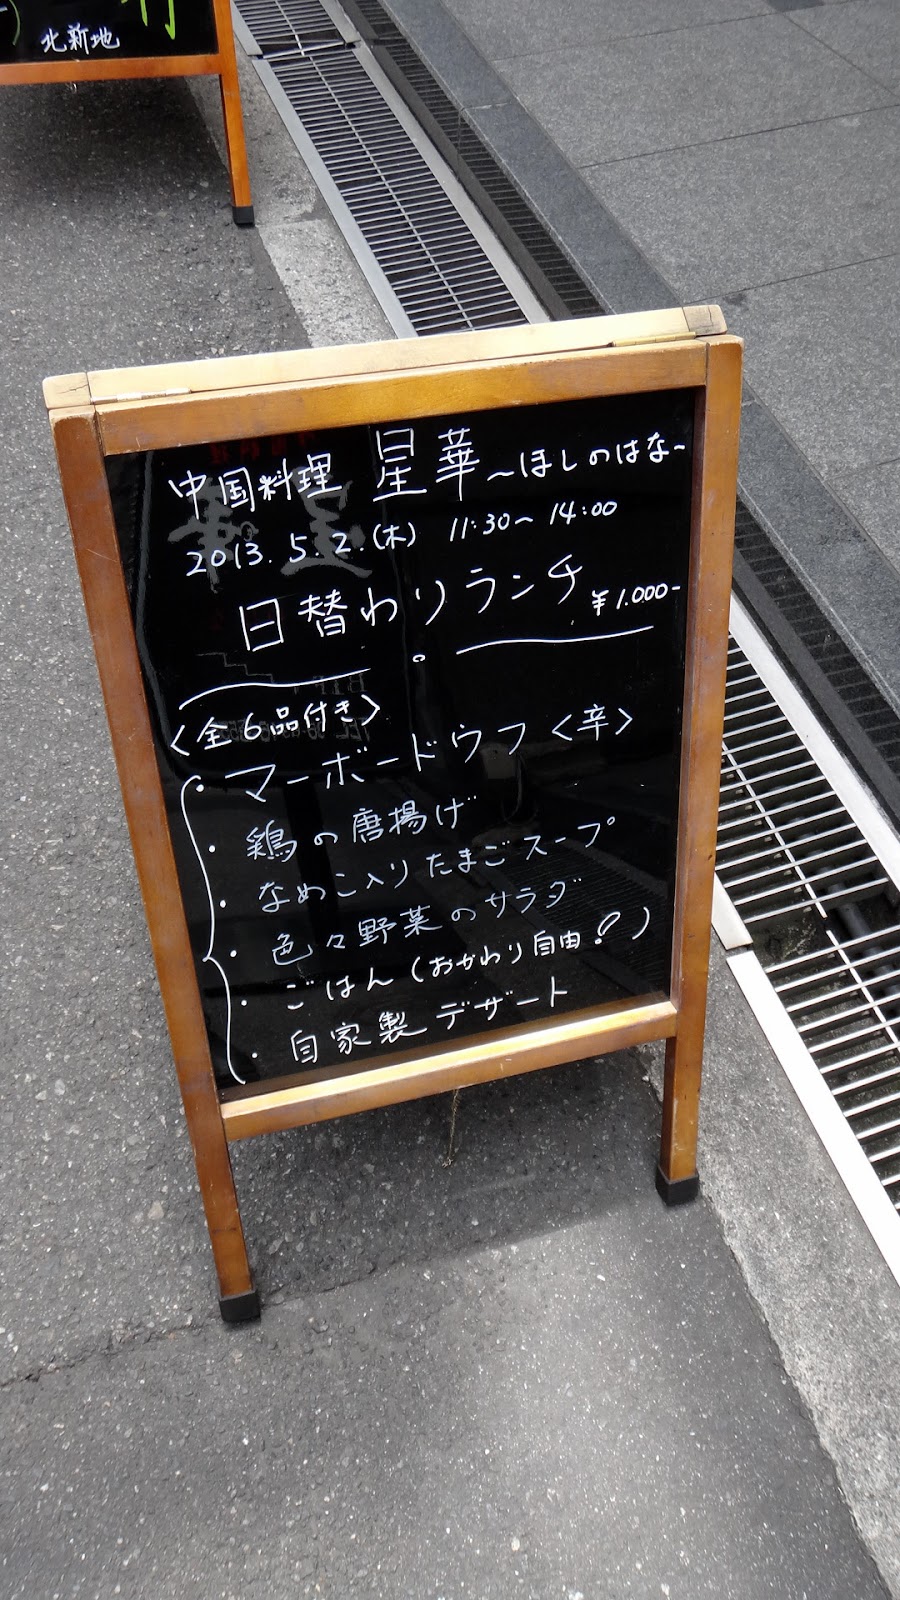 北新地
中国料理 星華 ～ほしのはな～
2013. 5. 2. (木) 11:30～14:00
日替わりランチ ¥1.000-
〈全6品付き〉
・マーボードウフ〈辛〉
・鶏の唐揚げ
・なめこ入りたまごスープ
・色々野菜のサラダ
・ごはん(おかわり自由!)
・自家製デザート